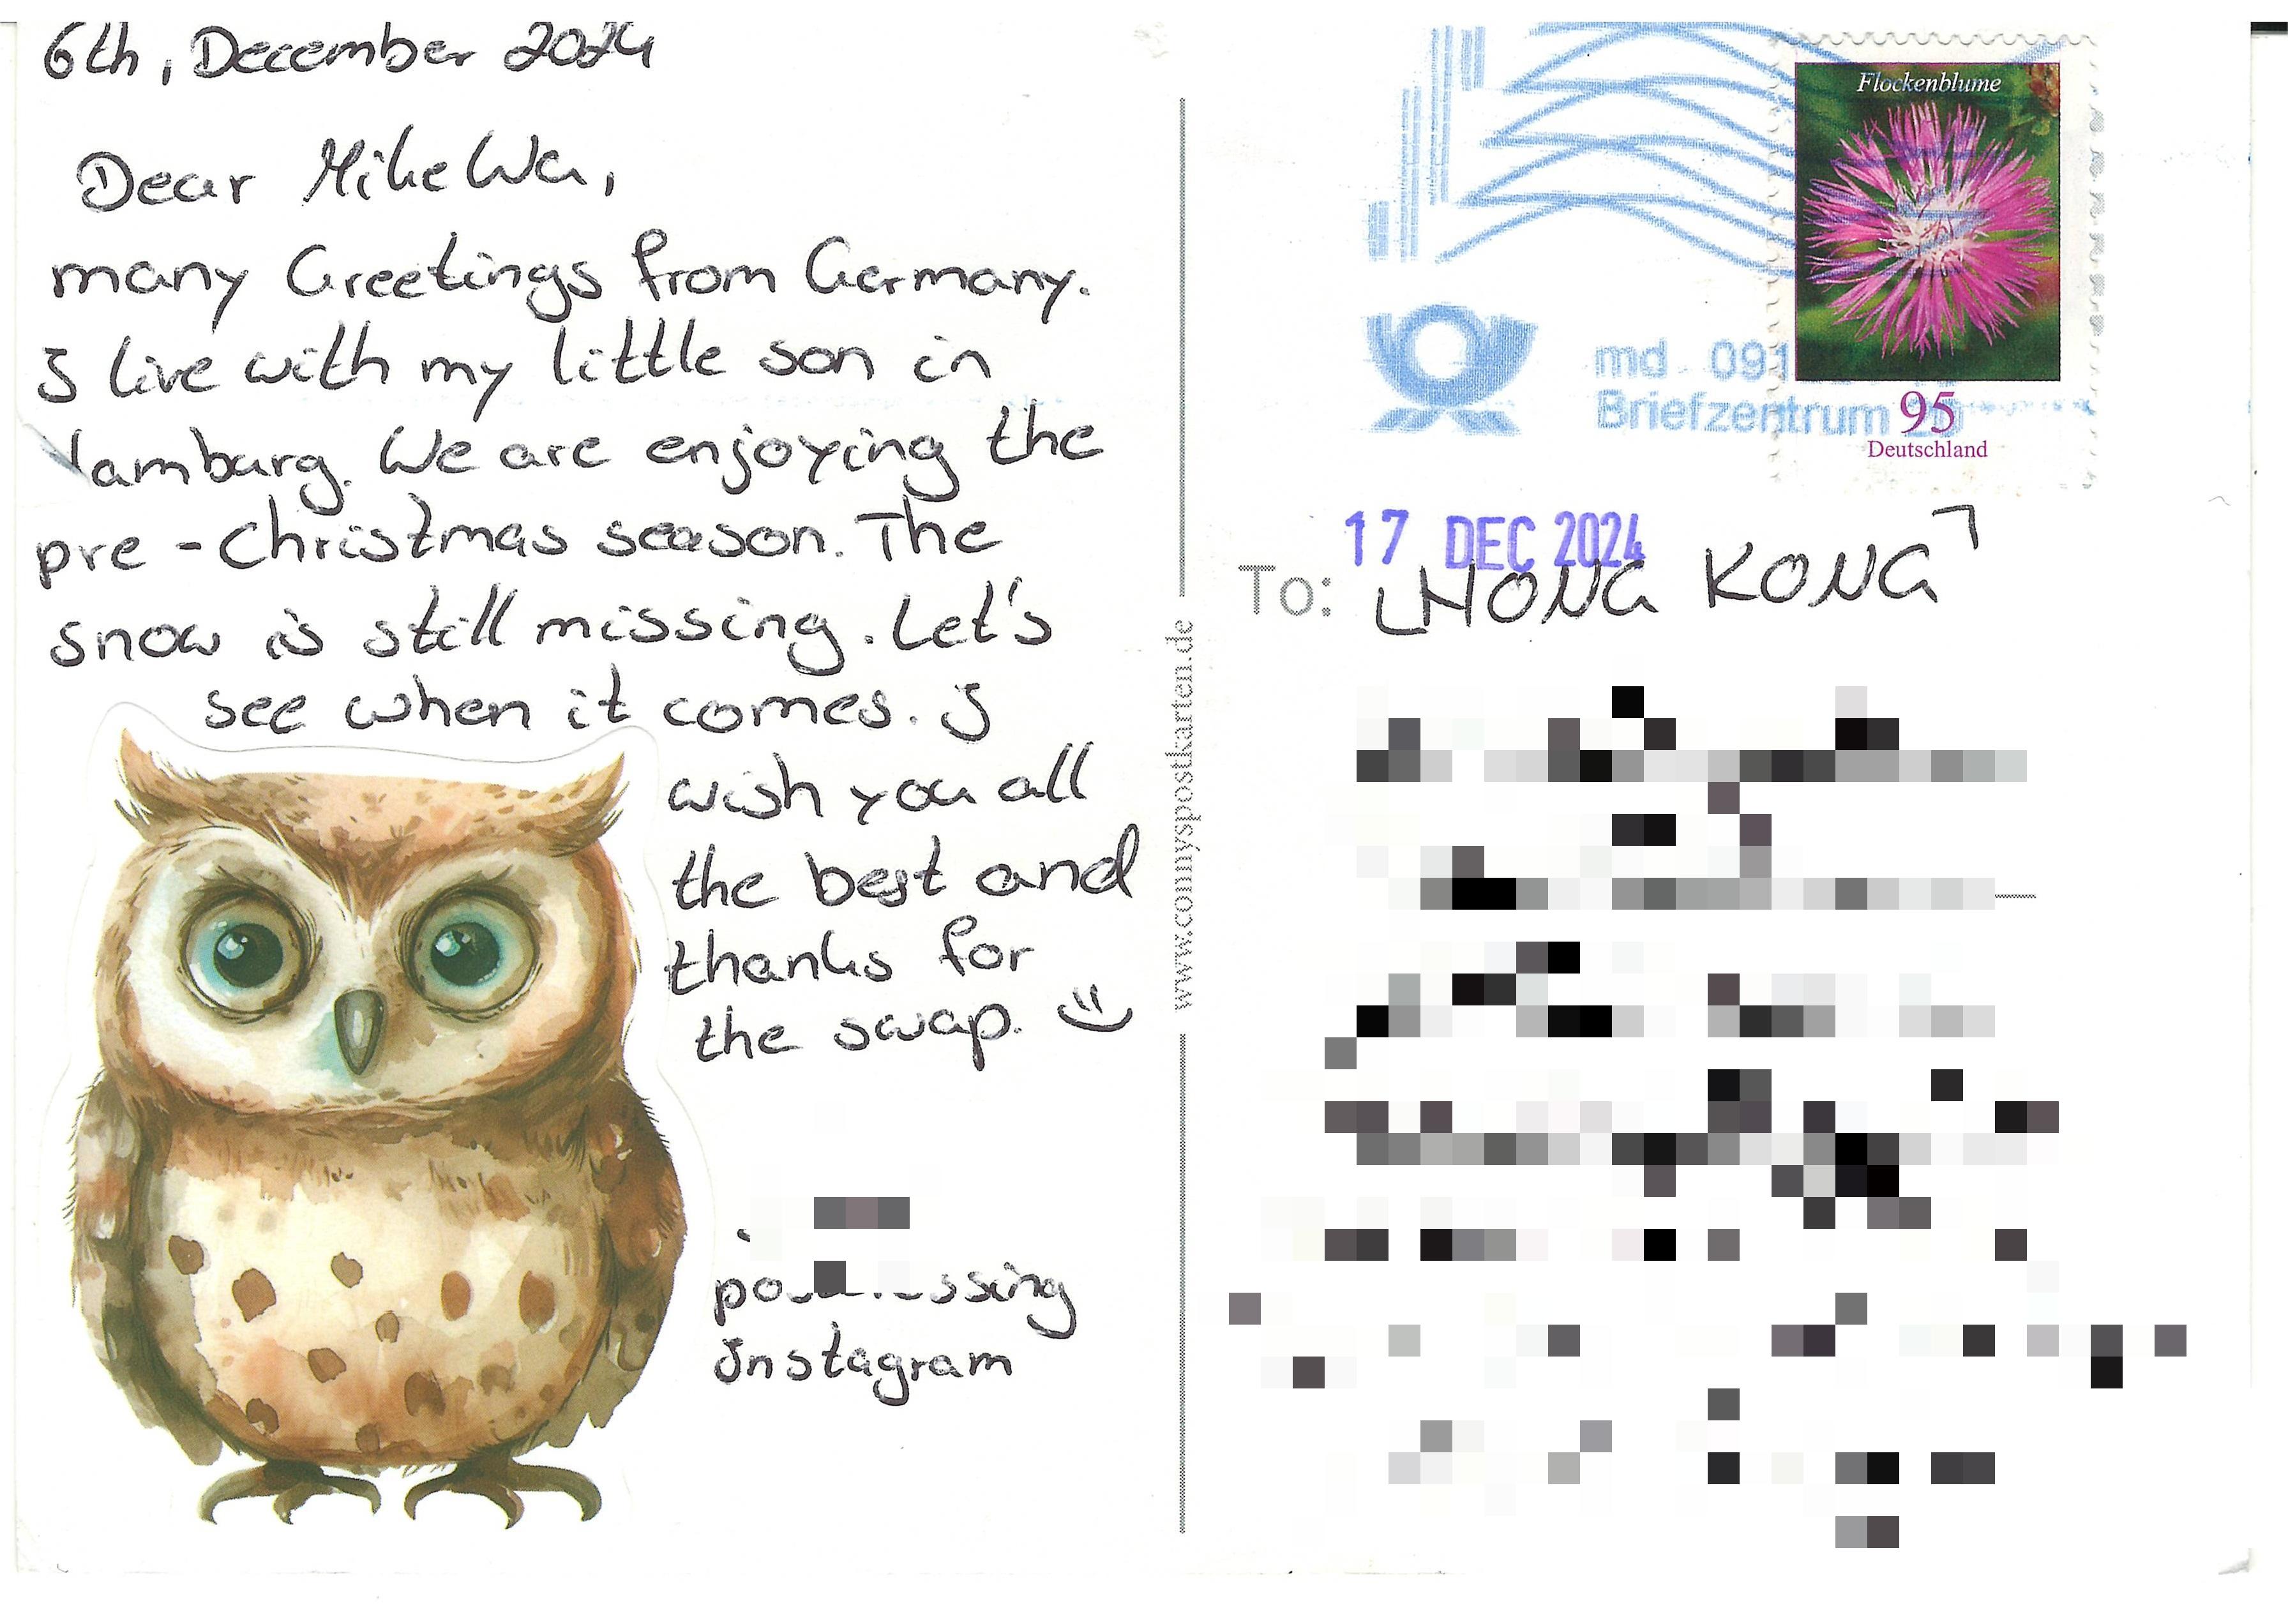 6th, December 2024
Dear Mike Wa,
many Greetings from Germany.
I live with my little son in
Hamburg. We are enjoying the
pre-Christmas season. The
snow is still missing. Let's
see when it comes. I
wish you all
the best and
thanks for
the swap.
Instagram
www.connyspostkarten.de
Flockenblume
95
Deutschland
md 091
Briefzentrum
17 DEC 2024
To: HONG KONG